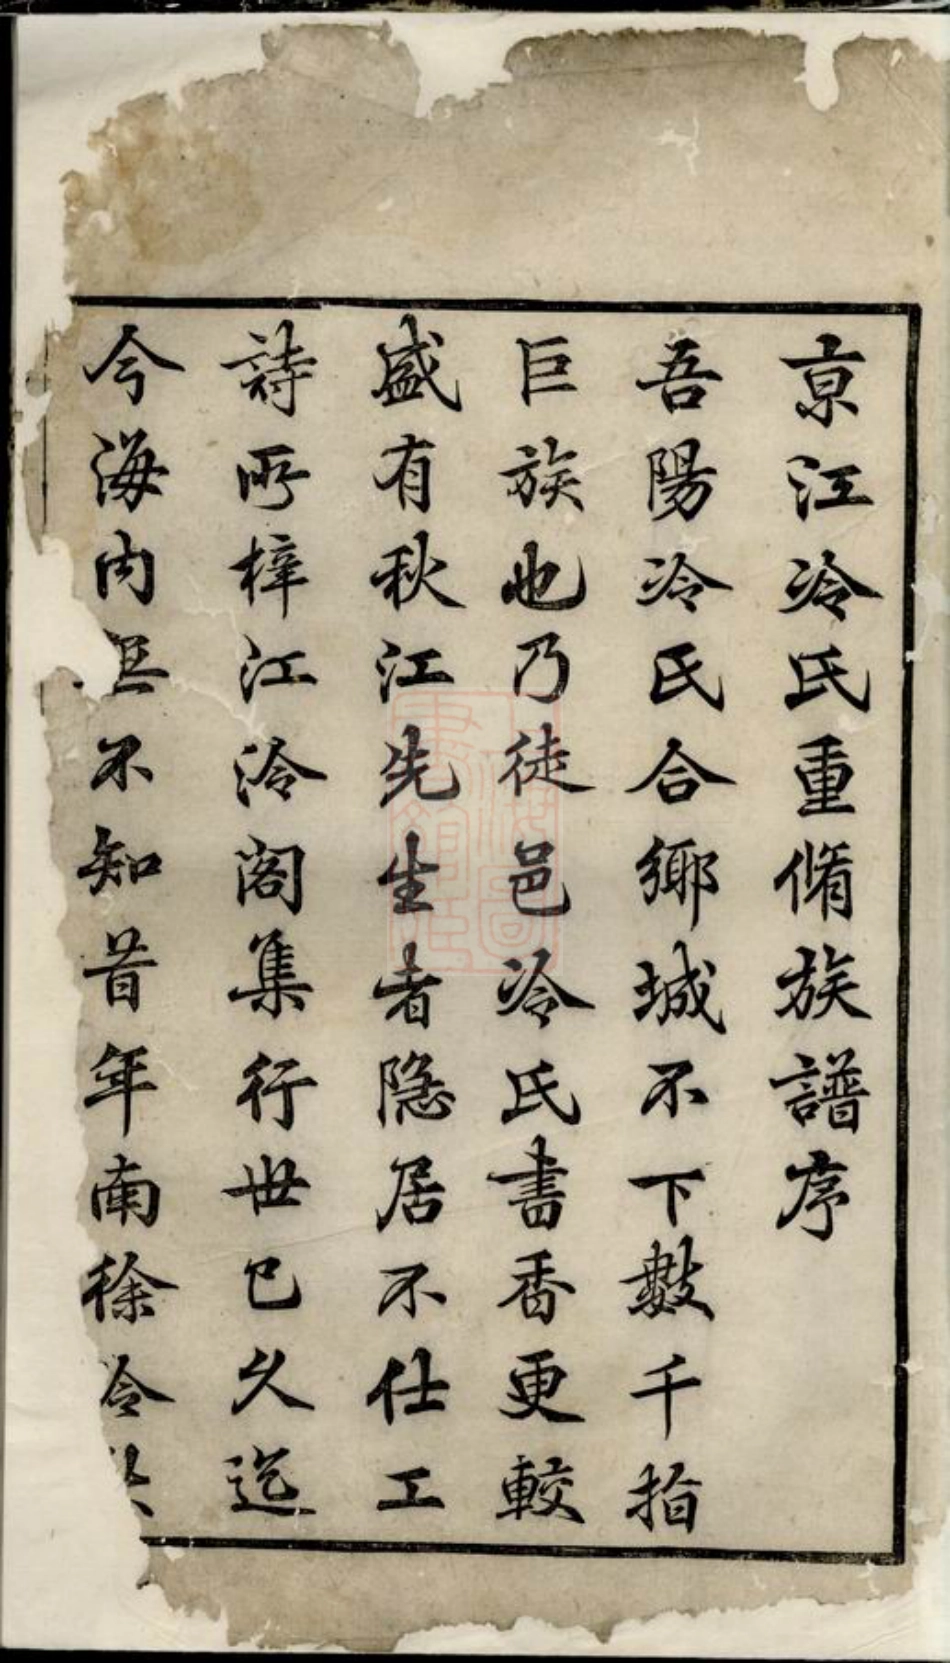 亰江冷氏重脩族譜序
吾陽冷氏合鄉城不下數千指
巨族也乃徒邑冷氏書香更較
盛有秋江先生者隐居不仕工
詩所梓江泠阁集行世已久迄
今海内不知昔年南徐冷